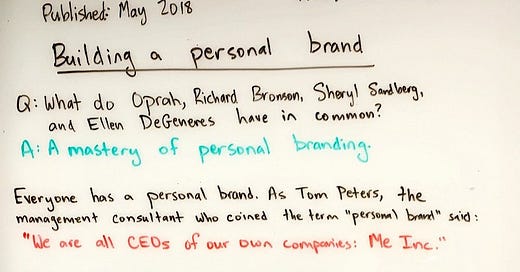 Published: May 2018
Building a personal brand
Q: What do Oprah, Richard Bronson, Sheryl Sandberg,
and Ellen DeGeneres have in common?
A: A mastery of personal branding.
Everyone has a personal brand. As Tom Peters, the
management consultant who coined the term "personal brand" said:
"We are all CEOs of our own companies: Me Inc."